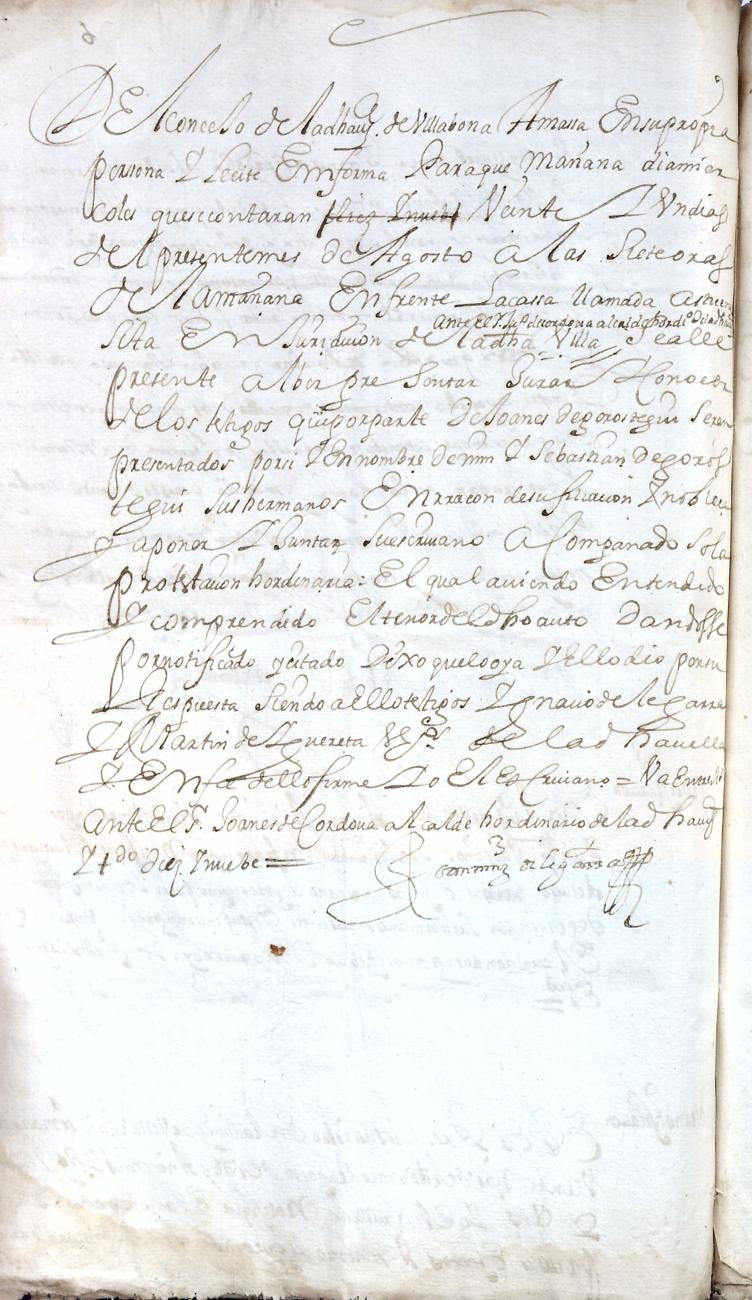 Del conceJo de la dha uj.ª de Villabona Amassa En su propia
persona Y le cite En forma Para que mañana dia mier
coles que se contaran diez Y nuebe Veinte Y Vn dias
del presente mes de Agosto a las siete oras
de la mañana En frente La cassa llamada
ante El s.r Juº de cordoua alcalde hordi.º de la dha uª
sita En Juridicion de la dha Villa, Se alle
presente a ber presentar Jurar Y Conocer
de los testigos que por parte de Joanes de gorostegui seran
presentados por si Y en nombre de mrn Y Sebastian de goros
tegui sus hermanos En rraçon de su filiacion Y nobleça
y a poner Y Juntar su escriuano aCompañado so la
protestacion hordinaria= El qual auiendo Entendido
y comprendido El tenor del dho auto Dandosse
por notificado y citado Dixo que lo oya Y ello dio por su
Respuesta siendo a ello testigos Ygnacio de legarra
Y Martin de Yguereta Vºs de la dha uilla
Y En fee dello firme Yo El Escriuano = Va Entre Rs
ante El s.r Joanes de Cordoua alcalde hordinario de la dha uª
Y tdo diez Y nuebe =
de legarra